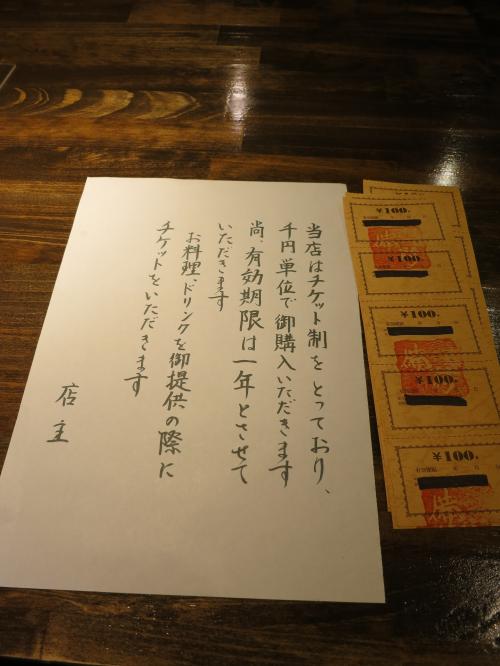 当店はチケット制をとっており、
千円単位で御購入いただきます
尚、有効期限は一年とさせて
いただきます
お料理、ドリンクを御提供の際に
チケットをいただきます
店主
¥100
¥100
¥100
¥100
¥100